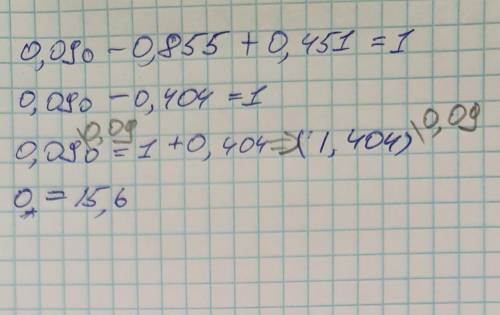 0,09o - 0,855 + 0,451 = 1
0,09o - 0,404 = 1
0,09o \0,09 = 1 + 0,404 => (1,404) \0,09
o = 15,6